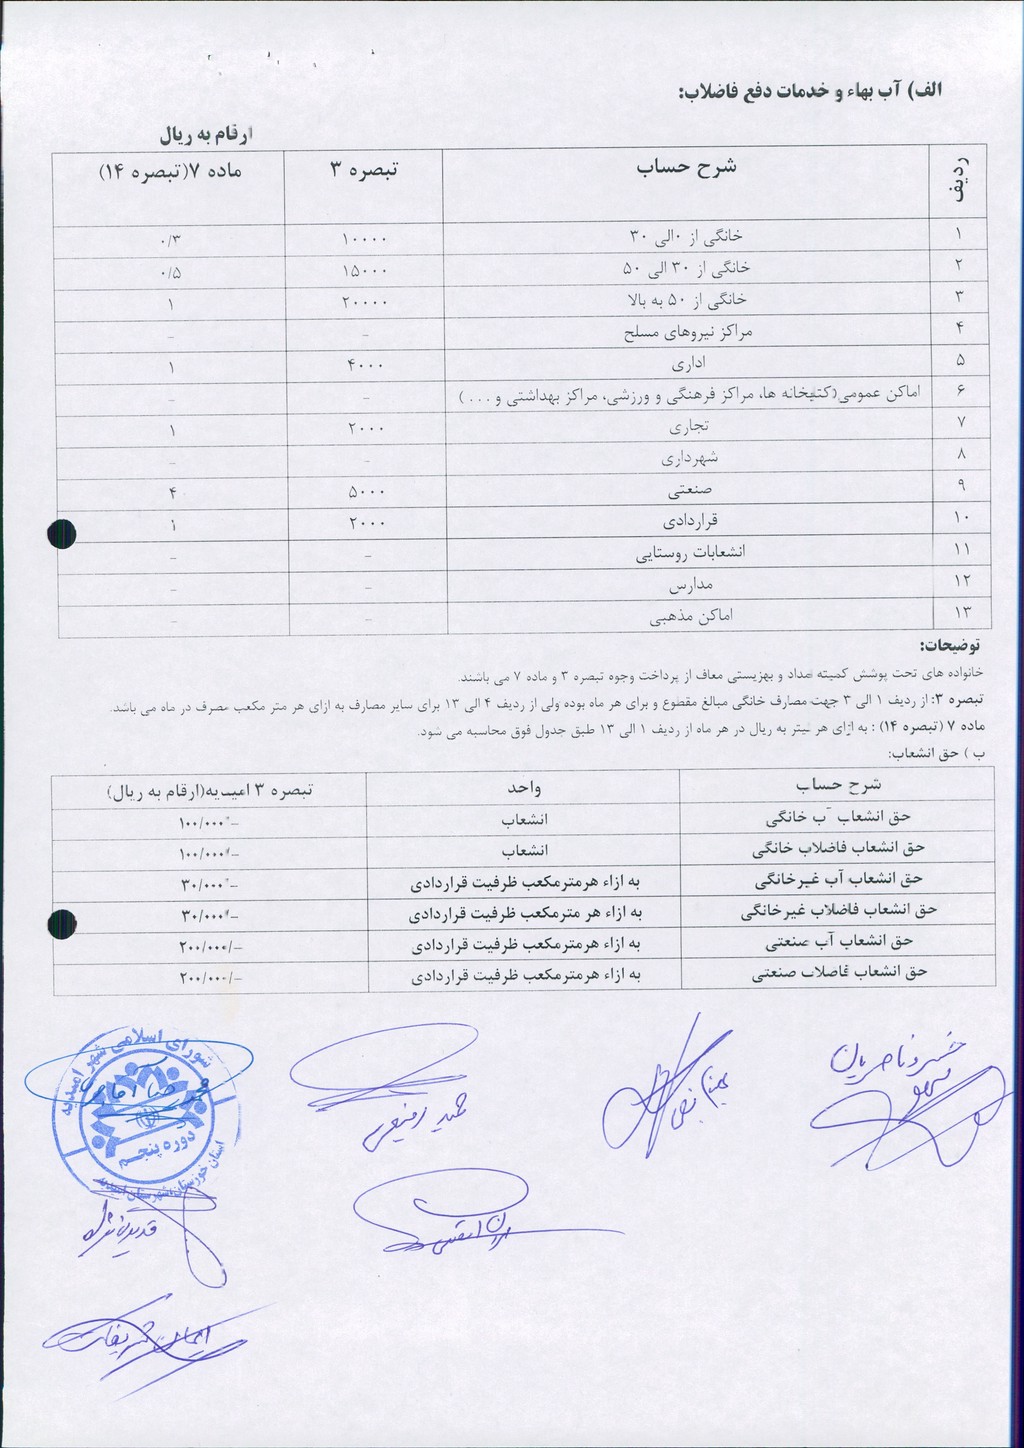 الف) آب بهاء و خدمات دفع فاضلاب:
ارقام به ریال
ردیف شرح حساب تبصره ۳ ماده ۷(تبصره ۱۴)
۱ خانگی از ۰الی ۳۰ ۱۰۰۰۰ ۰/۳
۲ خانگی از ۳۰ الی ۵۰ ۱۵۰۰۰ ۰/۵
۳ خانگی از ۵۰ به بالا ۲۰۰۰۰ ۱
۴ مراکز نیروهای مسلح - -
۵ اداری ۴۰۰۰ ۱
۶ اماکن عمومی(کتبخانه ها، مراکز فرهنگی و ورزشی، مراکز بهداشتی و ...) - -
۷ تجاری ۲۰۰۰ ۱
۸ شهرداری - -
۹ صنعتی ۵۰۰۰ ۴
۱۰ قراردادی ۲۰۰۰ ۱
۱۱ انشعابات روستایی - -
۱۲ مدارس - -
۱۳ اماکن مذهبی - -
توضیحات:
خانواده های تحت پوشش کمیته امداد و بهزیستی معاف از پرداخت وجوه تبصره ۳ و ماده ۷ می باشند.
تبصره ۳: از ردیف ۱ الی ۳ جهت مصارف خانگی مبالغ مقطوع و برای هر ماه بوده ولی از ردیف ۴ الی ۱۳ برای سایر مصارف به ازای هر متر مکعب مصرف در ماه می باشد.
ماده ۷ (تبصره ۱۴) : به ازای هر لیتر به ریال در هر ماه از ردیف ۱ الی ۱۳ طبق جدول فوق محاسبه می شود.
ب ) حق انشعاب:
شرح حساب واحد تبصره ۳ امیدیه(ارقام به ریال)
حق انشعاب آب خانگی انشعاب ۱۰۰/۰۰۰/-
حق انشعاب فاضلاب خانگی انشعاب ۱۰۰/۰۰۰/-
حق انشعاب آب غیرخانگی به ازاء هرمترمکعب ظرفیت قراردادی ۳۰/۰۰۰/-
حق انشعاب فاضلاب غیرخانگی به ازاء هر مترمکعب ظرفیت قراردادی ۳۰/۰۰۰/-
حق انشعاب آب صنعتی به ازاء هرمترمکعب ظرفیت قراردادی ۲۰۰/۰۰۰/-
حق انشعاب فاضلاب صنعتی به ازاء هرمترمکعب ظرفیت قراردادی ۲۰۰/۰۰۰/-
خسرو ناصریان
شورای اسلامی شهر امیدیه
دوره پنجم
استان خوزستان شهرستان امیدیه